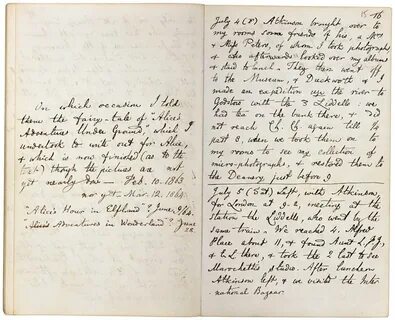 On which occasion I told
them the fairy-tale of "Alice's
Adventures Under Ground," which I
undertook to write out for Alice,
& which is now finished (as to the
text) though the pictures are not
yet nearly done — Feb. 10. 1863
nor yet — Mar. 12. 1864.
"Alice's Hour in Elfland"? June 9/64.
"Alice's Adventures in Wonderland"? June
28.
76
July 4 (F) Atkinson brought over to
my rooms some friends of his, a Mrs
& Miss Peters, of whom I took photographs
& who afterwards looked over my albums
& staid to lunch. They then went off
to the Museum, & Duckworth & I
made an expedition up the river to
Godstow with the 3 Liddells: we
had tea on the bank there, & did
not reach Ch. Ch. again till ¼
past 8, when we took them on to
my rooms to see my collection of
micro-photographs, & restored them to
the Deanery, just before 9.
July 5 (Sat) Left, with Atkinson,
for London at 9.2, meeting at the
station the Liddells, who went by the
same train. We reached 4. Alfred
Place about 11, & found Aunt L, P, J,
& L there, & took the 2 last to see
Marochetti's studio. After luncheon
Atkinson left, & we visited the Inter-
national Bazaar.